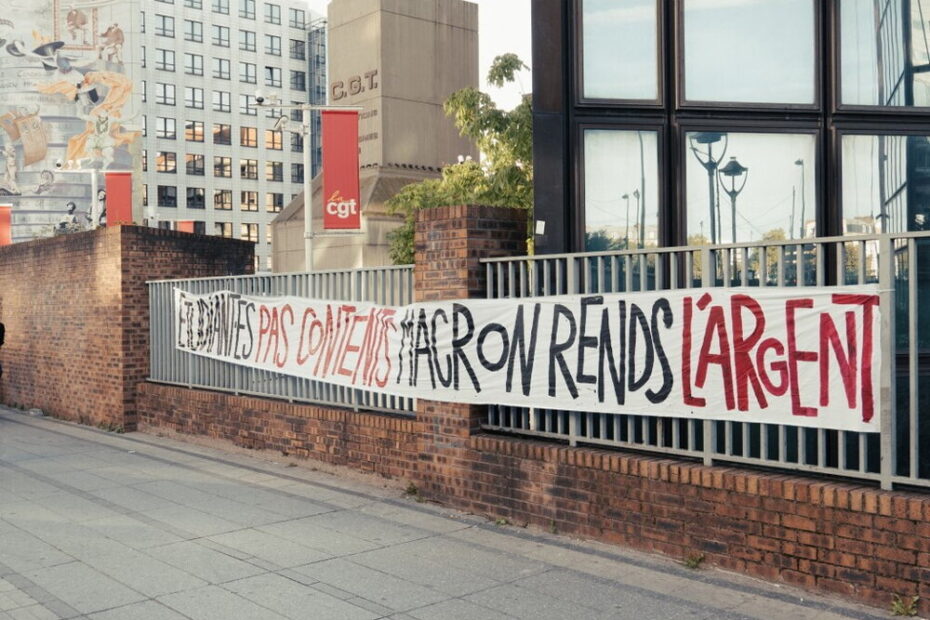 C.G.T.
la
cgt
ÉTUDIANT·ES PAS CONTENTS MACRON RENDS L'ARGENT